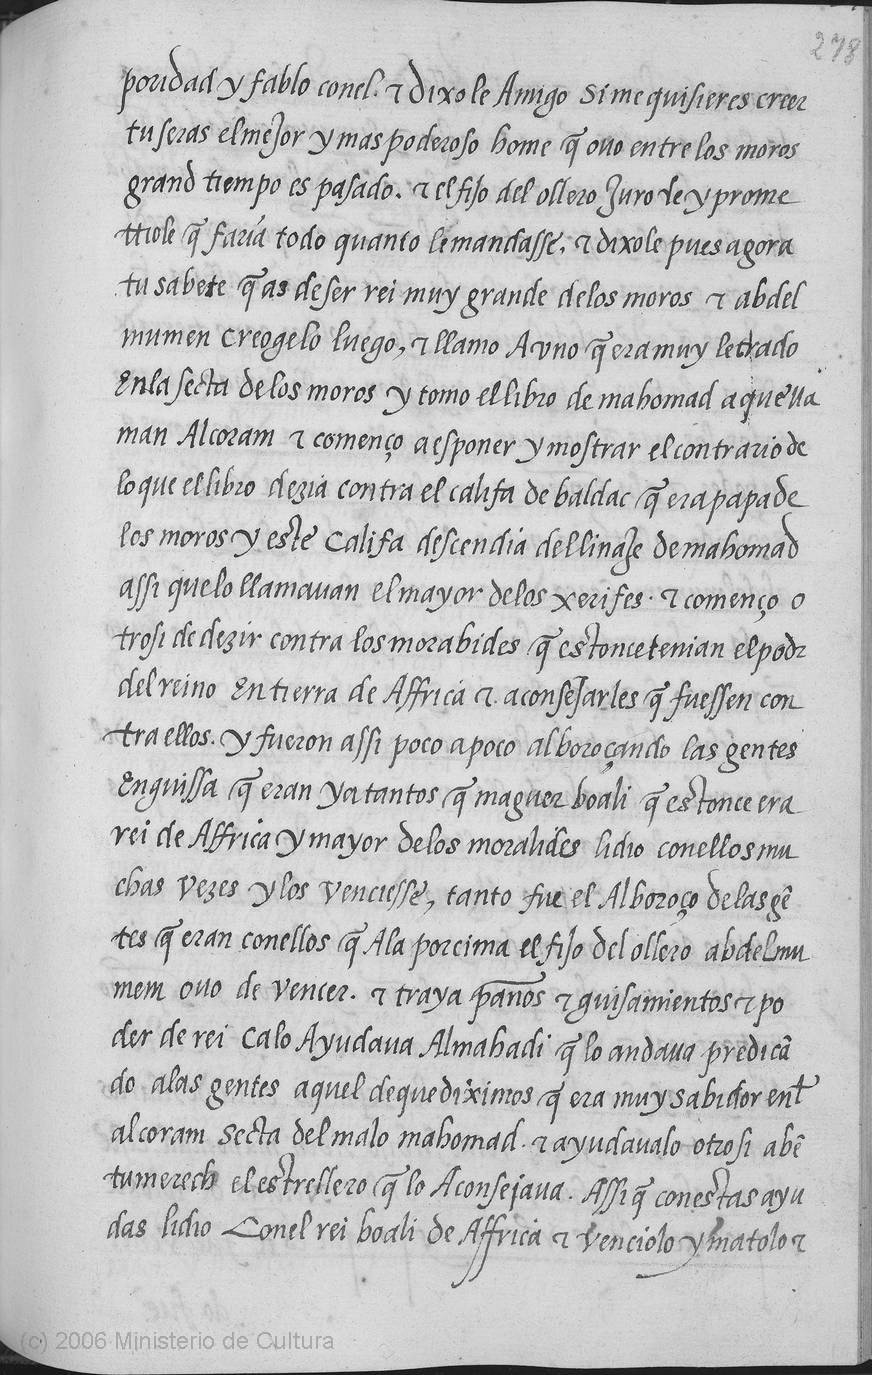 278
poridad y fablo conel. ꞇ dixole Amigo Si me quisieres creer
tu seras el mejor y mas poderoso home q̃ ouo entre los moros
grand tiempo es pasado. ꞇ el fijo del ollero Juro le y prome
ttiole q̃ faria todo quanto le mandasse, ꞇ dixole pues agora
tu sabete q̃ as de ser rei muy grande de los moros ꞇ abdel
mumen creogelo luego, ꞇ llamo A vno q̃ era muy letrado
En la secta de los moros y tomo el libro de mahomad a que lla
man Alcoram ꞇ començo a esponer y mostrar el contrario de
lo que el libro dezia contra el califa de baldac q̃ era papa de
los moros y este Califa descendia del linaje de mahomad
assi que lo llamauan el mayor de los xerifes. ꞇ començo o
trosi de dezir contra los morabides q̃ estonce tenian el podr
del reino En tierra de Affrica ꞇ aconsejarles q̃ fuessen con
tra ellos. y fueron assi poco a poco alboroçando las gentes
En guissa q̃ eran ya tantos q̃ maguer boali q̃ estonce era
rei de Affrica y mayor de los moralides lidio con ellos mu
chas vezes y los venciesse, tanto fue el Alboroço de las gẽ
tes q̃ eran con ellos q̃ A la por cima el fijo del ollero abdelmu
mem ouo de vencer. ꞇ traya paños ꞇ guisamientos ꞇ po
der de rei Ca lo Ayudaua Almahadi q̃ lo andaua predicã
do a las gentes aquel de que diximos q̃ era muy sabidor enl
alcoram Secta del malo mahomad. ꞇ ayudaualo otrosi abẽ
tumerech el estrellero q̃ lo Aconsejaua. Assi q̃ con estas ayu
das lidio Con el rei boali de Affrica ꞇ venciolo y matolo ꞇ
(c) 2006 Ministerio de Cultura